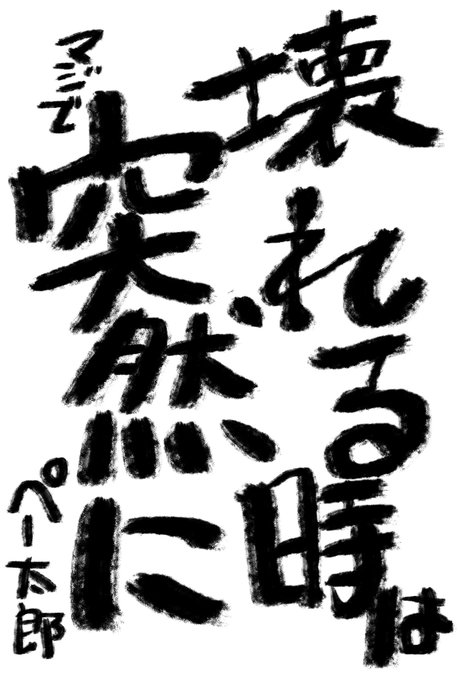 壊れる時は
突然に
マジで
ぺー太郎